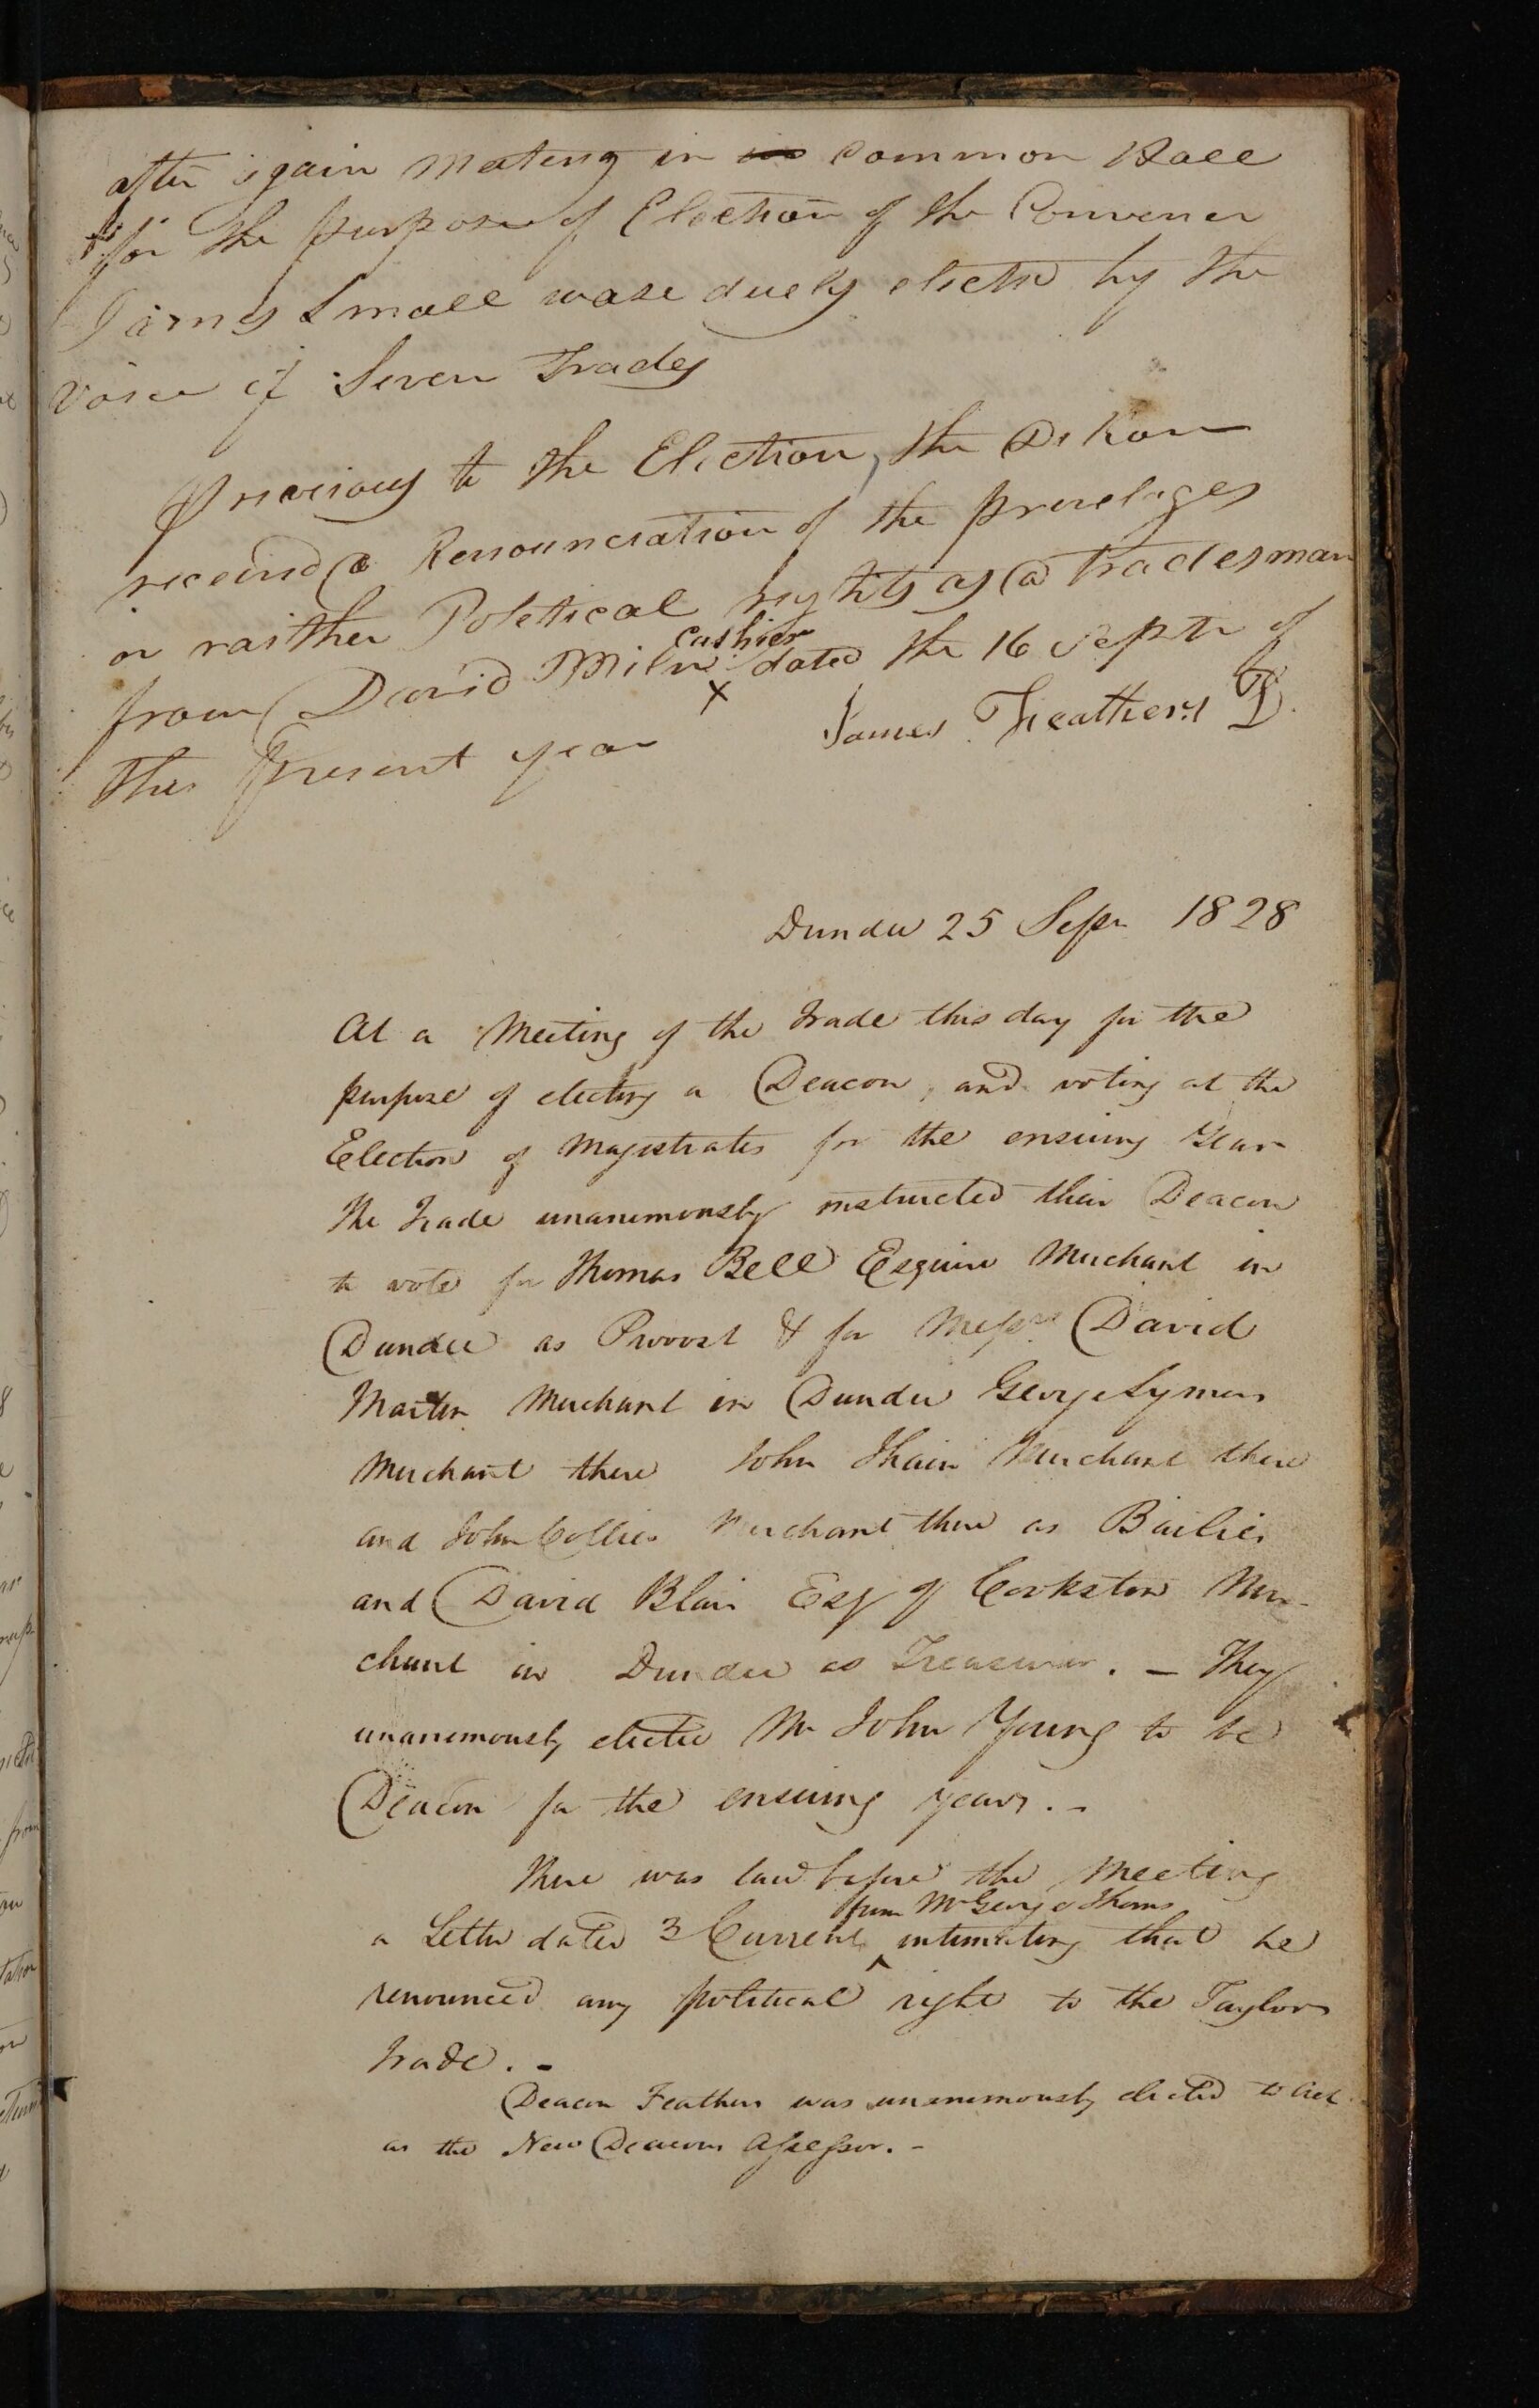 after again Meeting in in Common Hall
for the purpose of Election of the Convener
James Small wase duely elected by the
voice of Seven Trades
Previous to the Election, the Dekon
received a Renounciation of the privelages
or raither Poletical rights as a Tradesman
from David Miln Cashier dated the 16 Septr of
this present year
James Feathers D.
Dundee 25 Sepr 1828
At a Meeting of the Trade this day for the
purpose of electing a Deacon, and voting at the
Election of Magistrates for the ensuing Year
the Trade unanimously instructed their Deacon
to vote for Thomas Bell Esquire Merchant in
Dundee as Provost & for Messrs David
Martin Merchant in Dundee George Symers
Merchant there John Thain Merchant there
and John Collier Merchant there as Bailies
and David Blair Esqr of Cookston Mer-
chant in Dundee as Treasurer. – They
unanimously elected Mr John Young to be
Deacon for the ensuing year. –
There was laid before the Meeting
a Letter dated 3 Current from Mr George Thoms intimating that he
renounced any political right to the Taylor
Trade. –
Deacon Feathers was unanimously elected to act
as the New Deacons Assessor. –